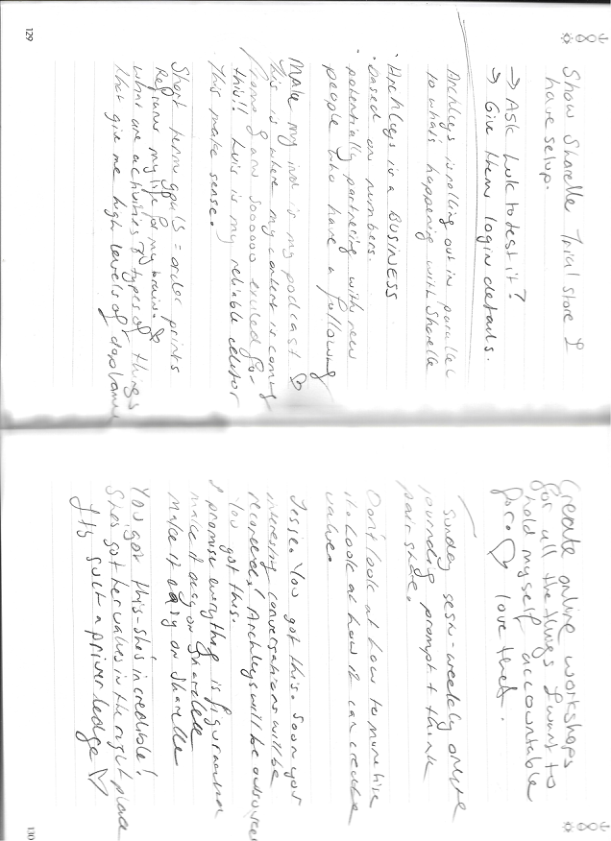 Show Sharelle Trial store I
have setup.
→ Ask Luk to test it?
→ Give them login details.
Archleys is rolling out in parallel
to what's happening with Sharelle
· Archleys is a BUSINESS
· based on numbers.
potentially partnering with new
people who have a following
Make my ind is my podcast ♡
this is where my content is coming
from & am soooooo excited for
this!! Luis is my reliable editor
This make sense.
Short term goals = order prints
Regains my life for my brain
what are activities & types of things
that give me high levels of dopamine
129
Create online workshops
for all the things I want to
hold myself accountable
for. ♡ love that.
Sunday sesh - weekly online
journaling prompt + think
pair share.
Don't look at how to monetise
it. Look at how it can create
value.
Jesse. You got this. Soon your
interesting conversations will be
recorded! Archleys will be outsourced
You got this.
I promise everything is figuroutable
make it easy on Sharelle
make it easy on Sharelle
You got this - she's incredible!
She's got her values in the right place
It's such a priverledge ♡
130